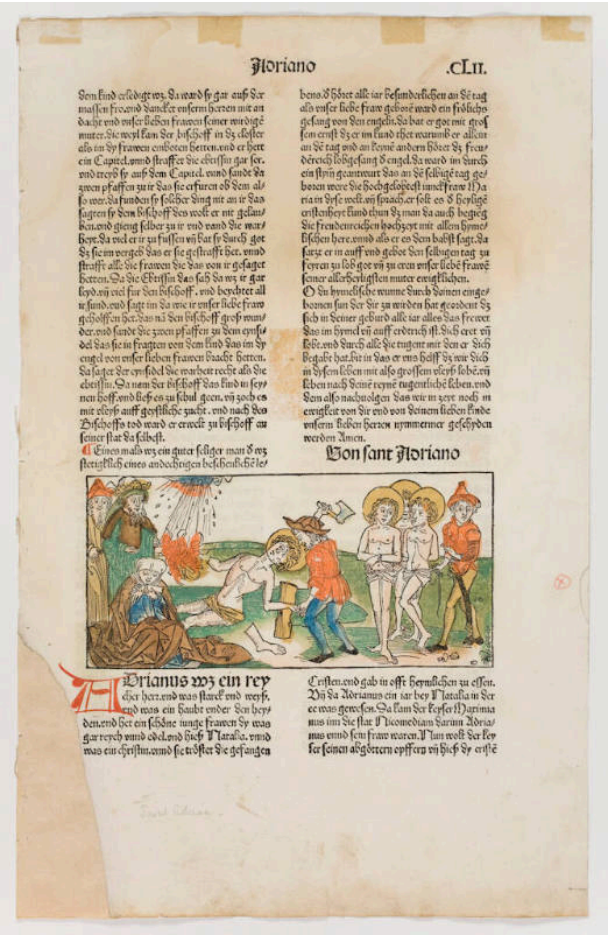 Adriano
.CLII.
dem kind erledigt wz. da ward sy gar auß der
massen fro. vnd dancket vnserm herren mit an
dacht vnd vnser lieben frawen seiner wirdigē
muter. die weyl kam der bischoff in dz closter
als im dy frawen embotten hetten. vnd er hett
ein Capitel. vnnd straffet die ebtissin gar ser.
vnd treyb sy auß dem Capitel. vnnd sandt da
zwen pfaffen zu ir das sie erfüren ob dem al-
so wer. da funden sy solicher ding nit an ir das
sagten sy dem bischoff des wolt er nit gelau-
ben. vnd gieng selber zu ir vnd vand die war-
heyt. da viel er ir zu füssen vñ bat sy durch got
dz sie im vergeb das er sie gestrafft het. vnnd
strafft alle die frawen die das von ir gesaget
hetten. Da die Ebtissin das sah da wz ir gar
leyd. vñ viel für den bischoff. vnd beychtet all
ir sund. vnd sagt im da wie ir vnser liebe fraw
geholffen het. das nā den bischoff groß wun-
der. vnd sandt die zwen pfaffen zu dem eynsi-
del das sie in fragten von dem kind das im dy
engel von vnser lieben frawen bracht hetten.
da saget der eynsidel die warheit recht als die
ebtissin. Da nam der bischoff das kind in sey-
nen hoff. vnd ließ es zu schul geen. vñ zoch es
mit vleyß auff geystliche zucht. vnd nach des
Bischoffs tod ward er erwelt zu bischoff an
seiner stat da selbest.
Eines mals wz ein guter seliger man d wz
stetigklich eines andechtigen beschenliche le-
bens. d höret alle iar besunderlichen an dē tag
als vnser liebe fraw geborē ward ein frölichs
gesang von den engeln. da bat er got mit gros
sem ernst dz er im kund thet warumb er allein
an dē tag vnd an keynē andern höret dz freu-
dēreich lobgesang d engel. da ward im durch
ein stym geantwurt das an dē selbigē tag ge-
boren were die hochgelobtest iunckfraw Ma
ria in dyse welt. vñ sprach. er solt es d heyligē
cristenheyt kund thun dz man da auch begieg
die freudenreichen hochzeyt mit allem hyme-
lischen here. vnnd als er es dem babst sagt. da
satzt er in auff vnd gebot den selbigen tag zu
feyren zu lob got vñ zu eren vnser liebē frawē
seiner allerheyligsten muter ewigklichen.
O du hymelische wunne durch deinen einge-
bornen sun der dir zu wirden hat geordent dz
sich in deiner geburd alle iar alles das frewet
das im hymel vñ auff erdtrich ist. dich eret vñ
lobt. vnd durch alle die tugent mit den er dich
begabt hat. bit in das er vns helff dz wir dich
in dysem leben mit also grossem vleyß lobē. vñ
leben nach deinē reynē tugentliche leben. vnd
dem also nachuolgen das wir in zeyt noch in
ewigkeit von dir vnd von deinem lieben kinde
vnserm lieben herren nymmermer geschyden
werden Amen.
Von sant Adriano
ADrianus wz ein rey
cher herr. vnd was starck vnd weyß.
vnd was ein haubt vnder den hey-
den. vnd het ein schöne iunge frawen dy was
gar reych vnnd edel. vnd hieß Natalia. vnnd
was ein christin. vnnd sie tröstet die gefangen
Cristen. vnd gab in offt heymlichen zu essen.
Vñ da Adrianus ein iar bey Natalia in der
ee was gewesen. Da kam der keyser Maximia
nus inn die stat Nicomediam darinn Adria-
nus vnnd sein fraw waren. Nun wolt der key
ser seinen abgöttern opffern vñ hieß dy cristē